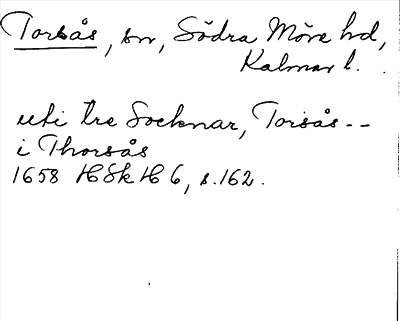 Torsås, sn, Södra Möre hd,
Kalmar l.
uti tre Socknar, Torsås --
i Thorsås
1658 HSkH 6, s. 162.